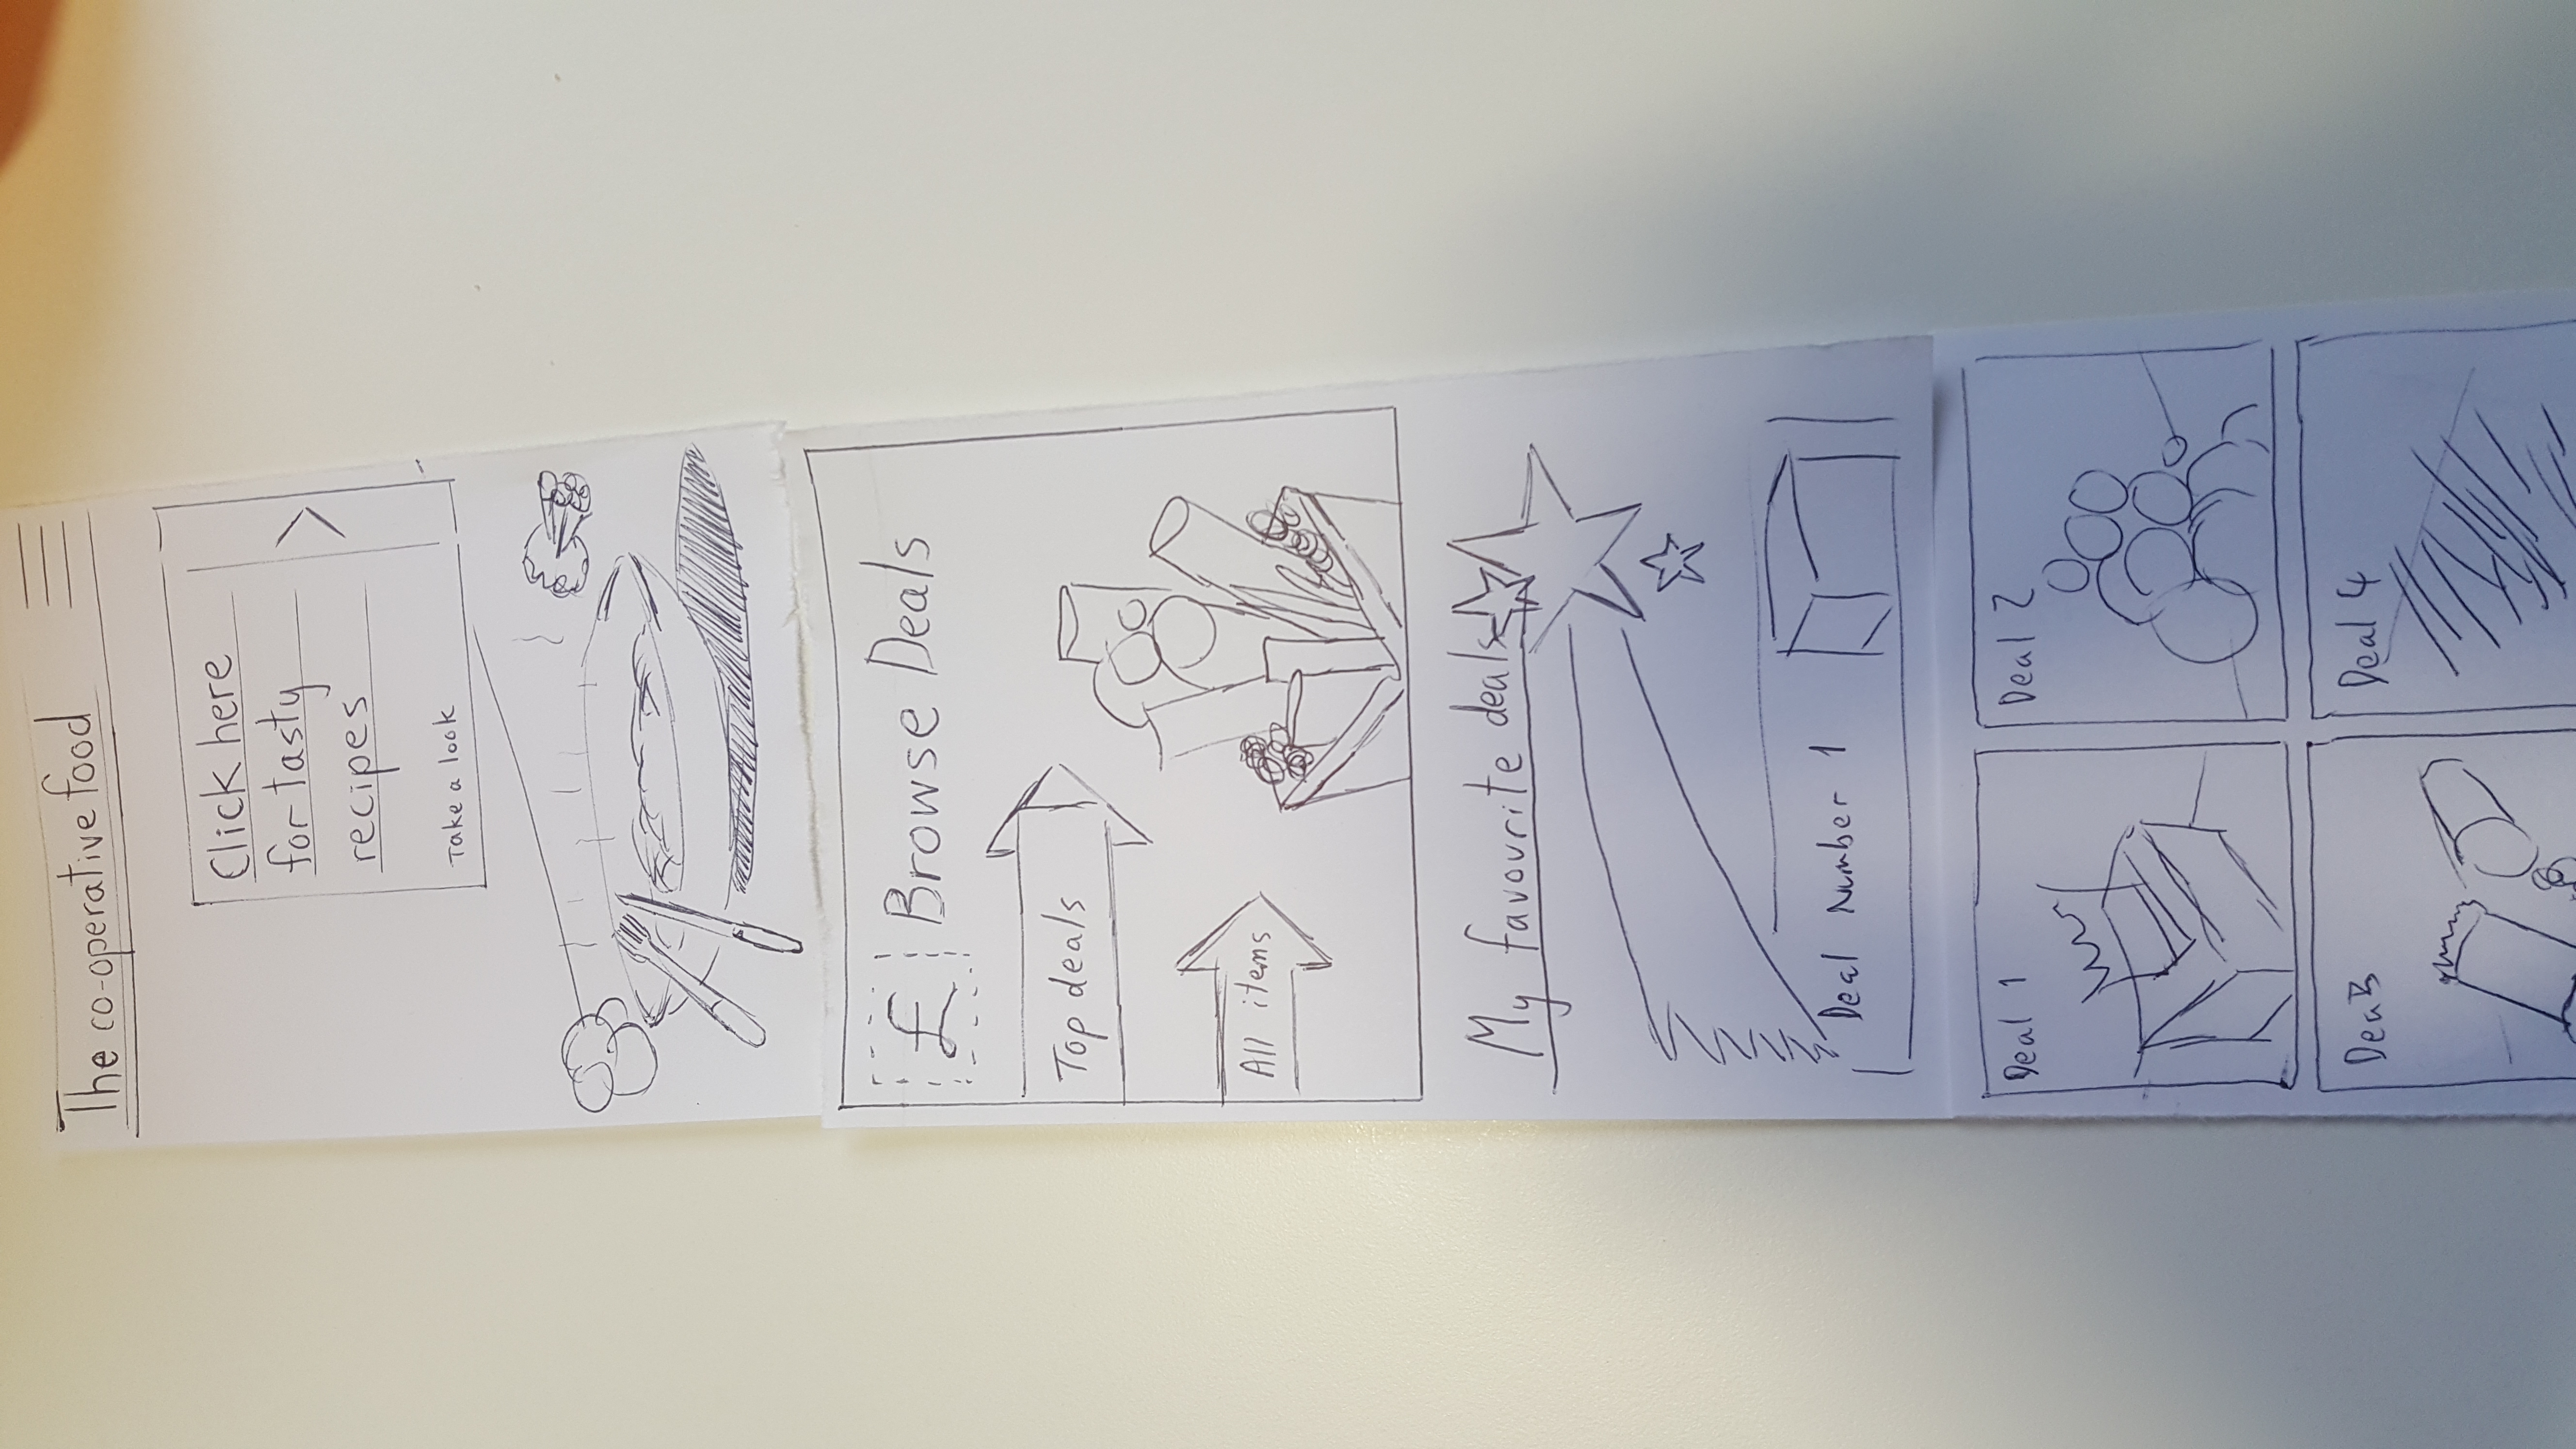 The co-operative food
Click here
for tasty
recipes
>
Take a look
£ Browse Deals
Top deals
All items
My favourite deals
Deal Number 1
Deal 1
Deal 2
Dea3
Deal 4